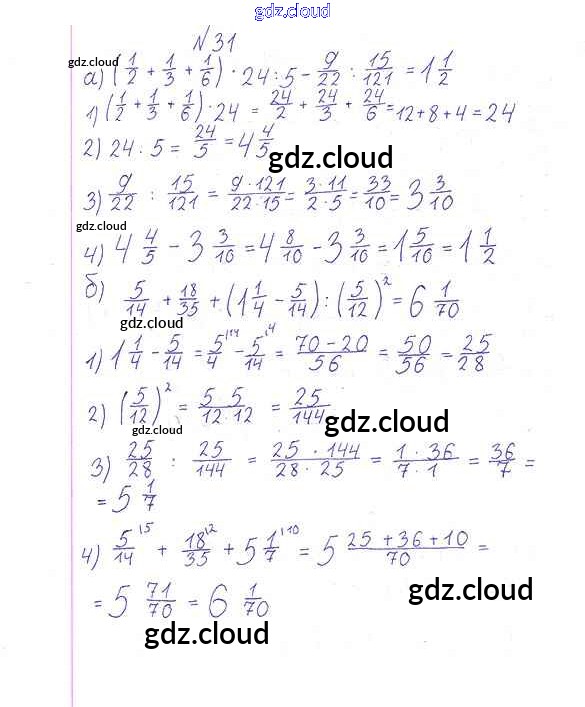 gdz.cloud
N 31
gdz.cloud
а) (1/2 + 1/3 + 1/6) · 24 : 5 - 9/22 : 15/121 = 1 1/2
1) (1/2 + 1/3 + 1/6) · 24 = 24/2 + 24/3 + 24/6 = 12 + 8 + 4 = 24
2) 24 : 5 = 24/5 = 4 4/5
gdz.cloud
3) 9/22 : 15/121 = 9·121/22·15 = 3·11/2·5 = 33/10 = 3 3/10
gdz.cloud
4) 4 4/5 - 3 3/10 = 4 8/10 - 3 3/10 = 1 5/10 = 1 1/2
б) 5/14 + 18/35 + (1 1/4 - 5/14) : (5/12)² = 6 1/70
gdz.cloud
gdz.cloud
1) 1 1/4 - 5/14 = 5/4 |14 - 5/14 |4 = 70-20/56 = 50/56 = 25/28
2) (5/12)² = 5·5/12·12 = 25/144
gdz.cloud
gdz.cloud
3) 25/28 : 25/144 = 25·144/28·25 = 1·36/7·1 = 36/7 =
= 5 1/7
4) 5/14 |5 + 18/35 |2 + 5 1/7 |10 = 5 25+36+10/70 =
= 5 71/70 = 6 1/70
gdz.cloud
gdz.cloud